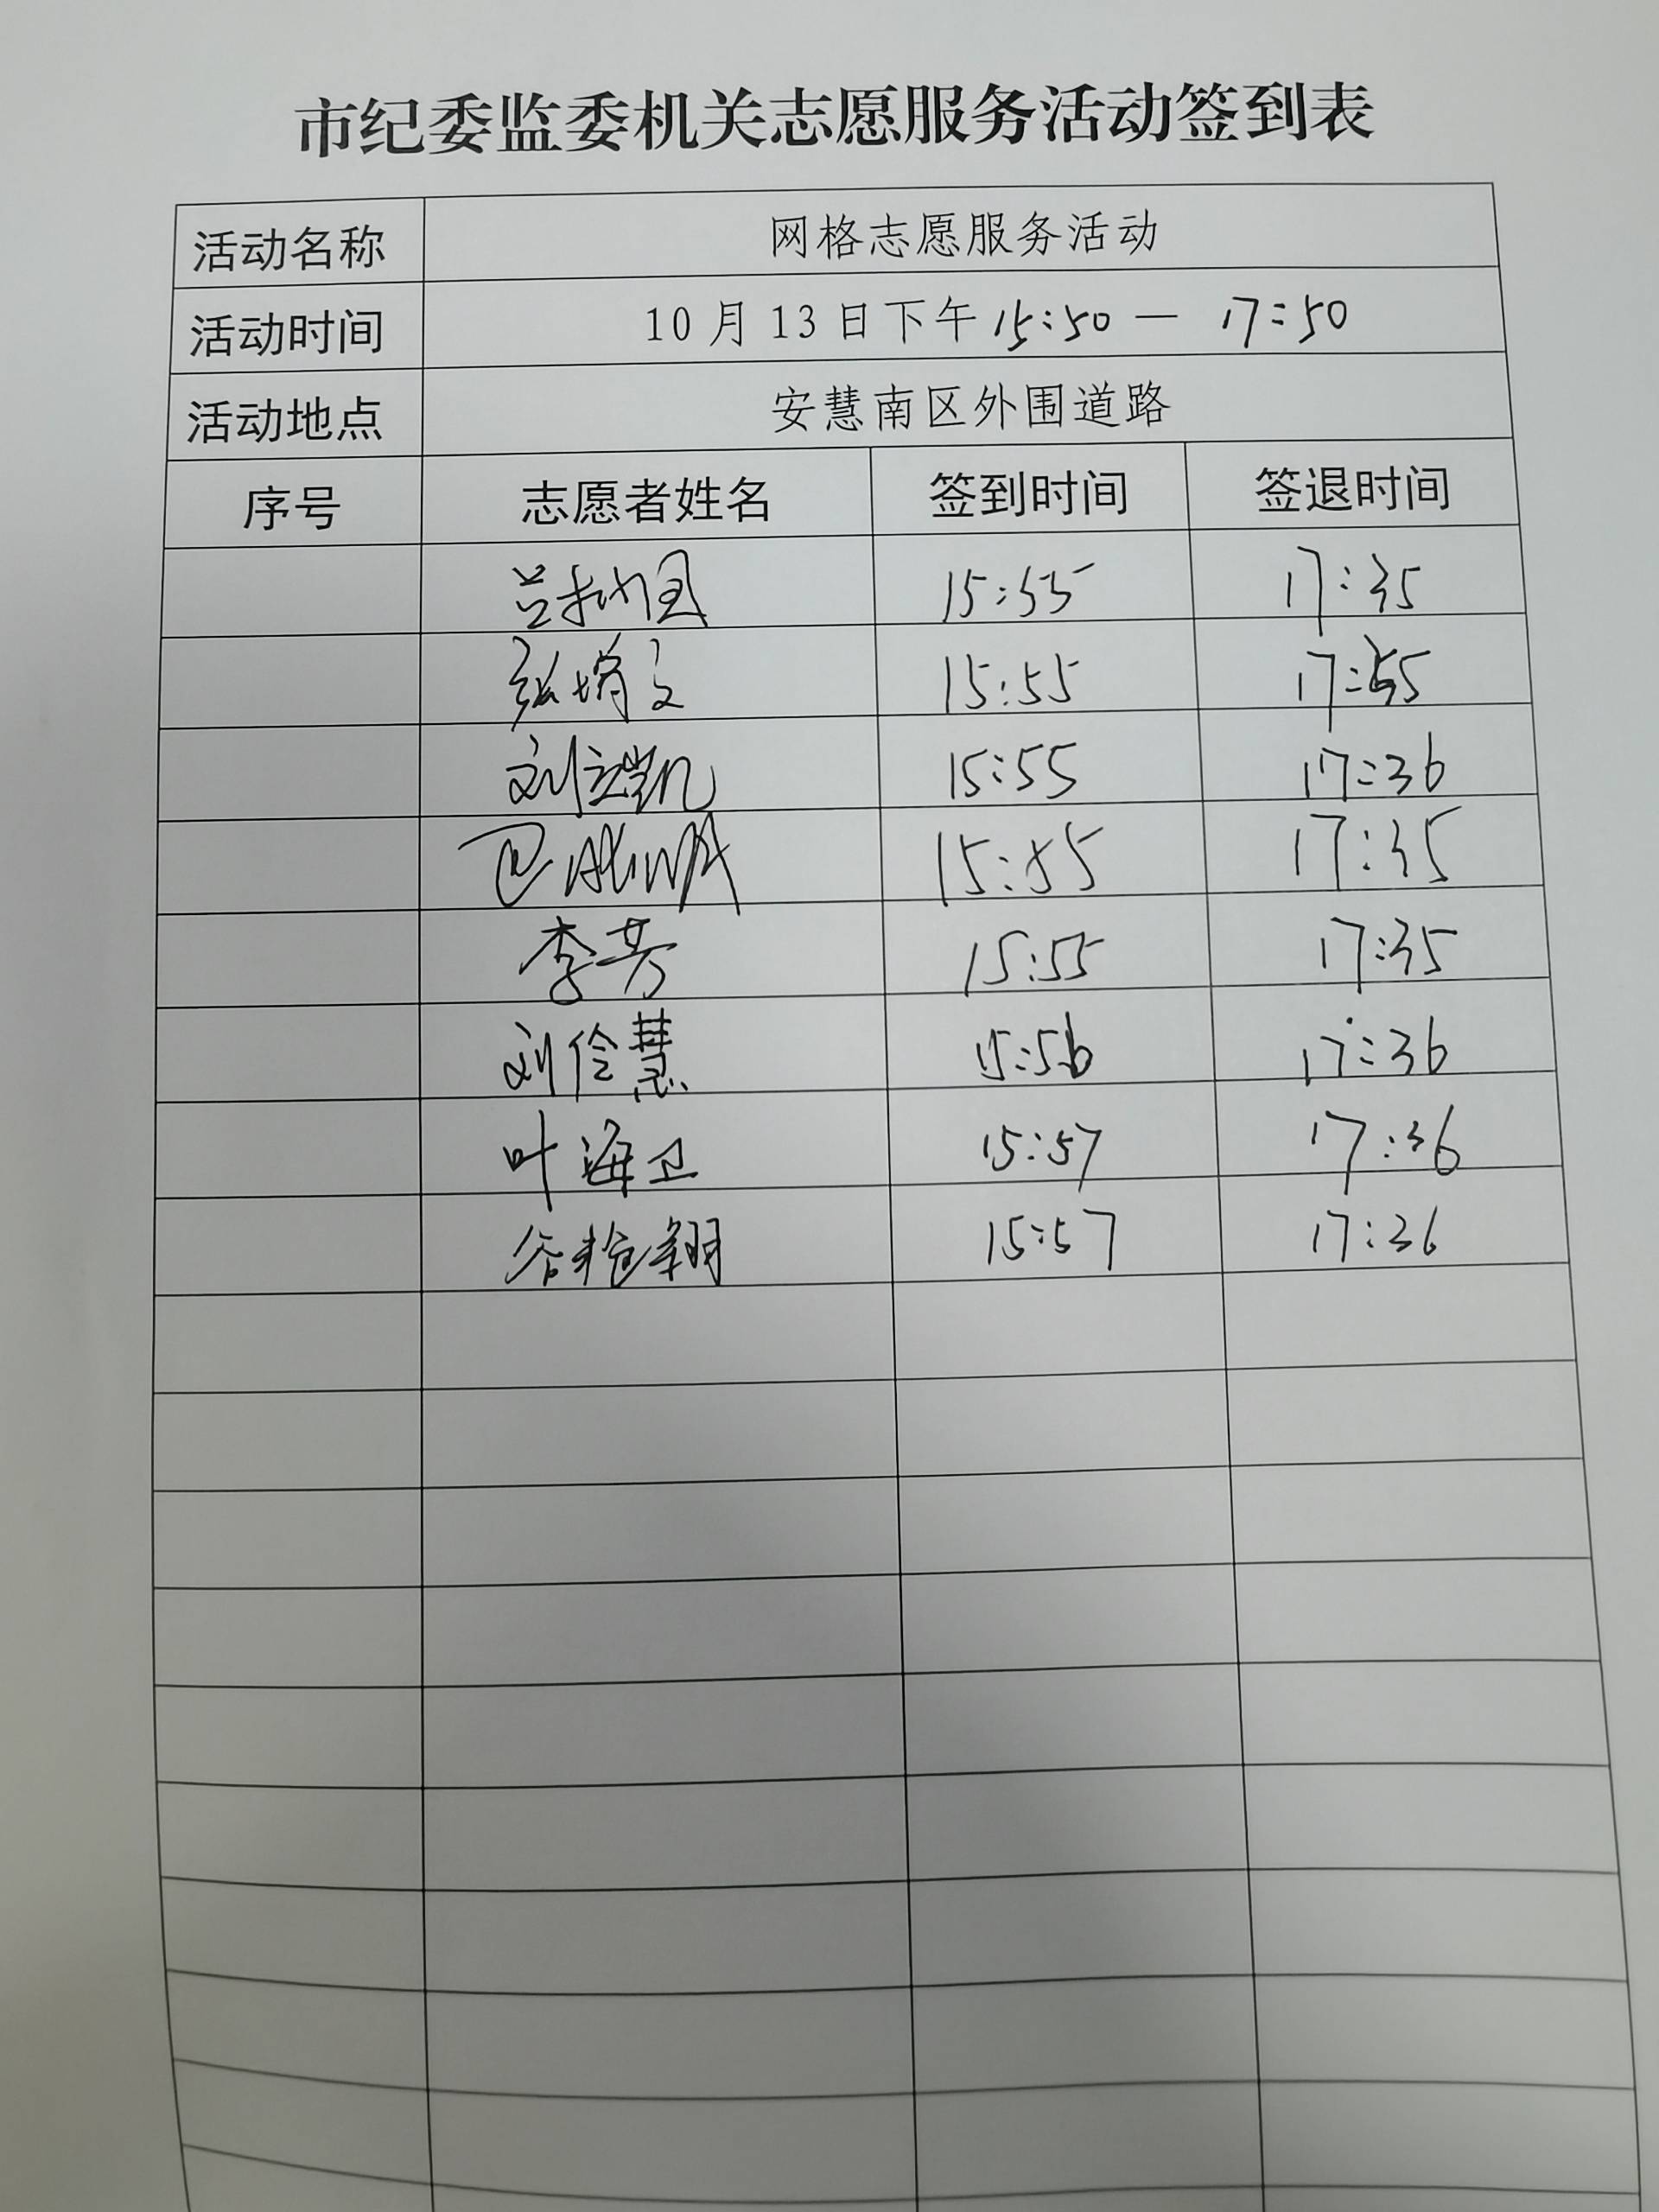 市纪委监委机关志愿服务活动签到表
活动名称 网格志愿服务活动
活动时间 10月13日下午 15:50 — 17:50
活动地点 安慧南区外围道路
序号 志愿者姓名 签到时间 签退时间
15:55 17:35
15:55
刘立凯 15:55 17:36
15:55 17:35
李芳 15:55 17:35
刘伶慧 15:56 17:36
叶海卫 15:57 17:36
15:57 17:36